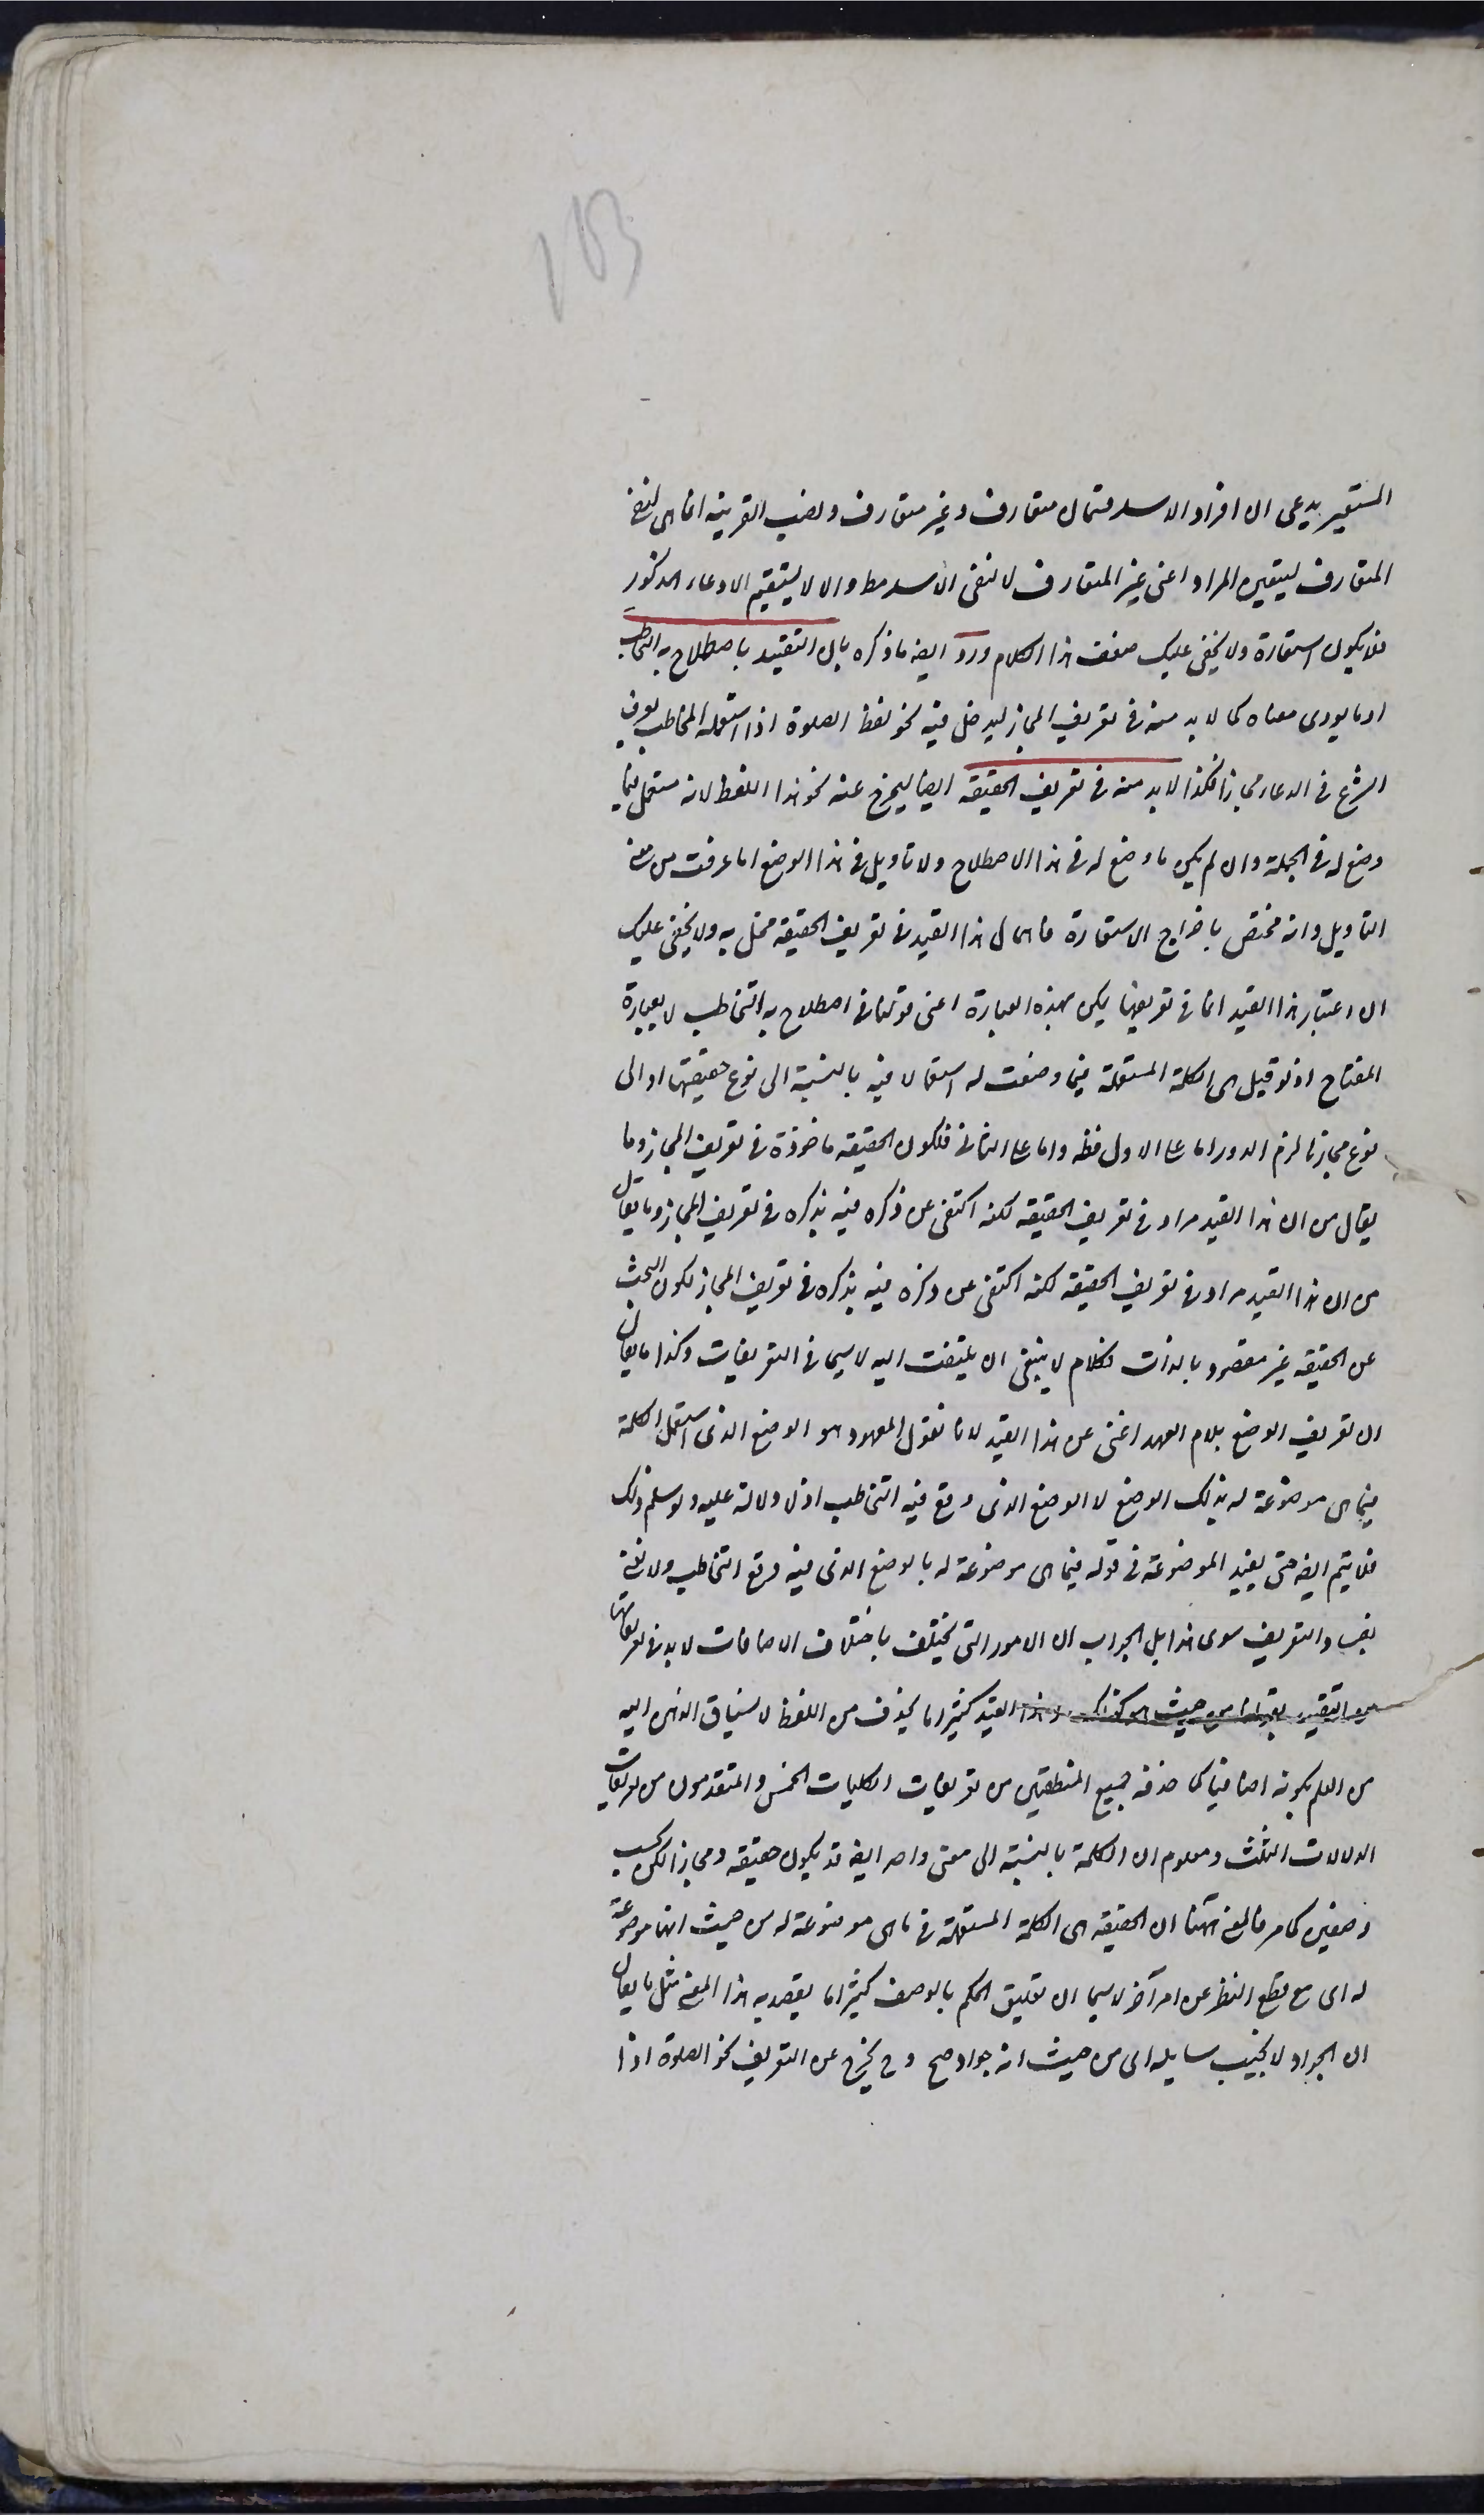 153
المستعير يدعى ان افراد الاسد قسمان متعارف وغير متعارف ونصب القرينه انما هى لنفى
المتعارف ليتعين المراد اعنى غير المتعارف لا لنفى الاسد مط والا لا يستقيم الادعاء المذكور
فلا يكون استعارة ولا يخفى عليك ضعف هذا الكلام ورد ايضه ما ذكره بان التقييد باصطلاح به التخاطب
او ما يودى معناه كما لا بد منه فى تعريف المجاز ليدخل فيه نحو لفظ الصلوة اذا استعمله المخاطب بعرف
الشرع فى الدعاء مجازا فكذا لا بد منه فى تعريف الحقيقة ايضا ليخرج عنه نحو هذا اللفظ لانه مستعمل فيما
وضع له فى الجملة وان لم يكن ما وضع له فى هذا الاصطلاح ولا تاويل فى هذا الوضع لما عرفت من معنى
التاويل وانه مختص باخراج الاستعارة فاهمال هذا القيد فى تعريف الحقيقة مخل به ولا يخفى عليك
ان اعتبار هذا القيد انما فى تعريفها يكن بهذه العبارة اعنى قولنا فى اصطلاح به التخاطب لا بعبارة
المفتاح اذ لو قيل هى الكلمة المستعملة فيما وضعت له استعمالا فيه بالنسبة الى نوع حقيقتها او الى
نوع مجازها لزم الدور اما على الاول فظه واما على الثانى فلكون الحقيقه ماخوذة فى تعريف المجاز وما
يقال من ان هذا القيد مراد فى تعريف الحقيقه لكنه اكتفى عن ذكره فيه بذكره فى تعريف المجاز وما يقال
من ان هذا القيد مراد فى تعريف الحقيقه لكنه اكتفى عن ذكره فيه بذكره فى تعريف المجاز لكون البحث
عن الحقيقه غير مقصود بالذات فكلام لا ينبغى ان يلتفت اليه لا سيما فى التعريفات وكذا ما يقال
ان تعريف الوضع بلام العهد اغنى عن هذا القيد لانا نقول المعهود هو الوضع الذى استعمل الكلمة
فيما هى موضوعة له بذلك الوضع لا الوضع الذى وقع فيه التخاطب اذ لا دلالة عليه ولو سلم ذلك
فلا يتم ايضه حتى يقيد الموضوعة فى قوله فيما هى موضوعة له بالوضع الذى فيه وقع التخاطب ولا نعنى
بفساد التعريف سوى هذا بل الجواب ان الامور التى تختلف باختلاف الاضافات لا بد فى تعريفاتها
من التقييد بقولنا من حيث هو كذلك وهذا القيد كثيرا ما يحذف من اللفظ لانسياق الذهن اليه
من العلم بكونه اضافيا كما حذفه جميع المنطقيين من تعريفات الكليات الخمس والمتقدمون من تعريفات
الدلالات الثلث ومعلوم ان الكلمة بالنسبة الى معنى واحد ايضه قد يكون حقيقه ومجازا لكن بحسب
وضعين كما مر فالمعنى ههنا ان الحقيقه هى الكلمة المستعملة فى ما هى موضوعة له من حيث انها موضوعة
له اى مع قطع النظر عن امر آخر لا سيما ان تعليق الحكم بالوصف كثيرا ما يقصد به هذا المعنى مثل ما يقال
ان الجواد لا يخيب سايله اى من حيث انه جواد صح وح يخرج عن التعريف نحو الصلوة اذا